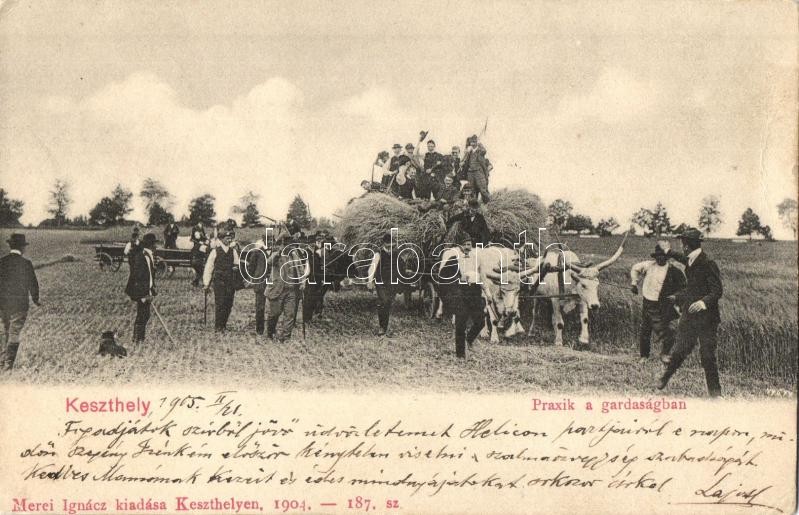 darabanth.com
Keszthely 1905. II/21.
Praxik a gardaságban
Fogadjátok szívből jövő üdvözletemet Helicon partjairól e napon, mi-
dőn szegény először kénytelen viselni a szalmaözvegység szabadságát
kedves Mamómnak kezeit és édes mindnyájatokat sokszor Lajos
Merei Ignácz kiadása Keszthelyen, 1904. — 187. sz.